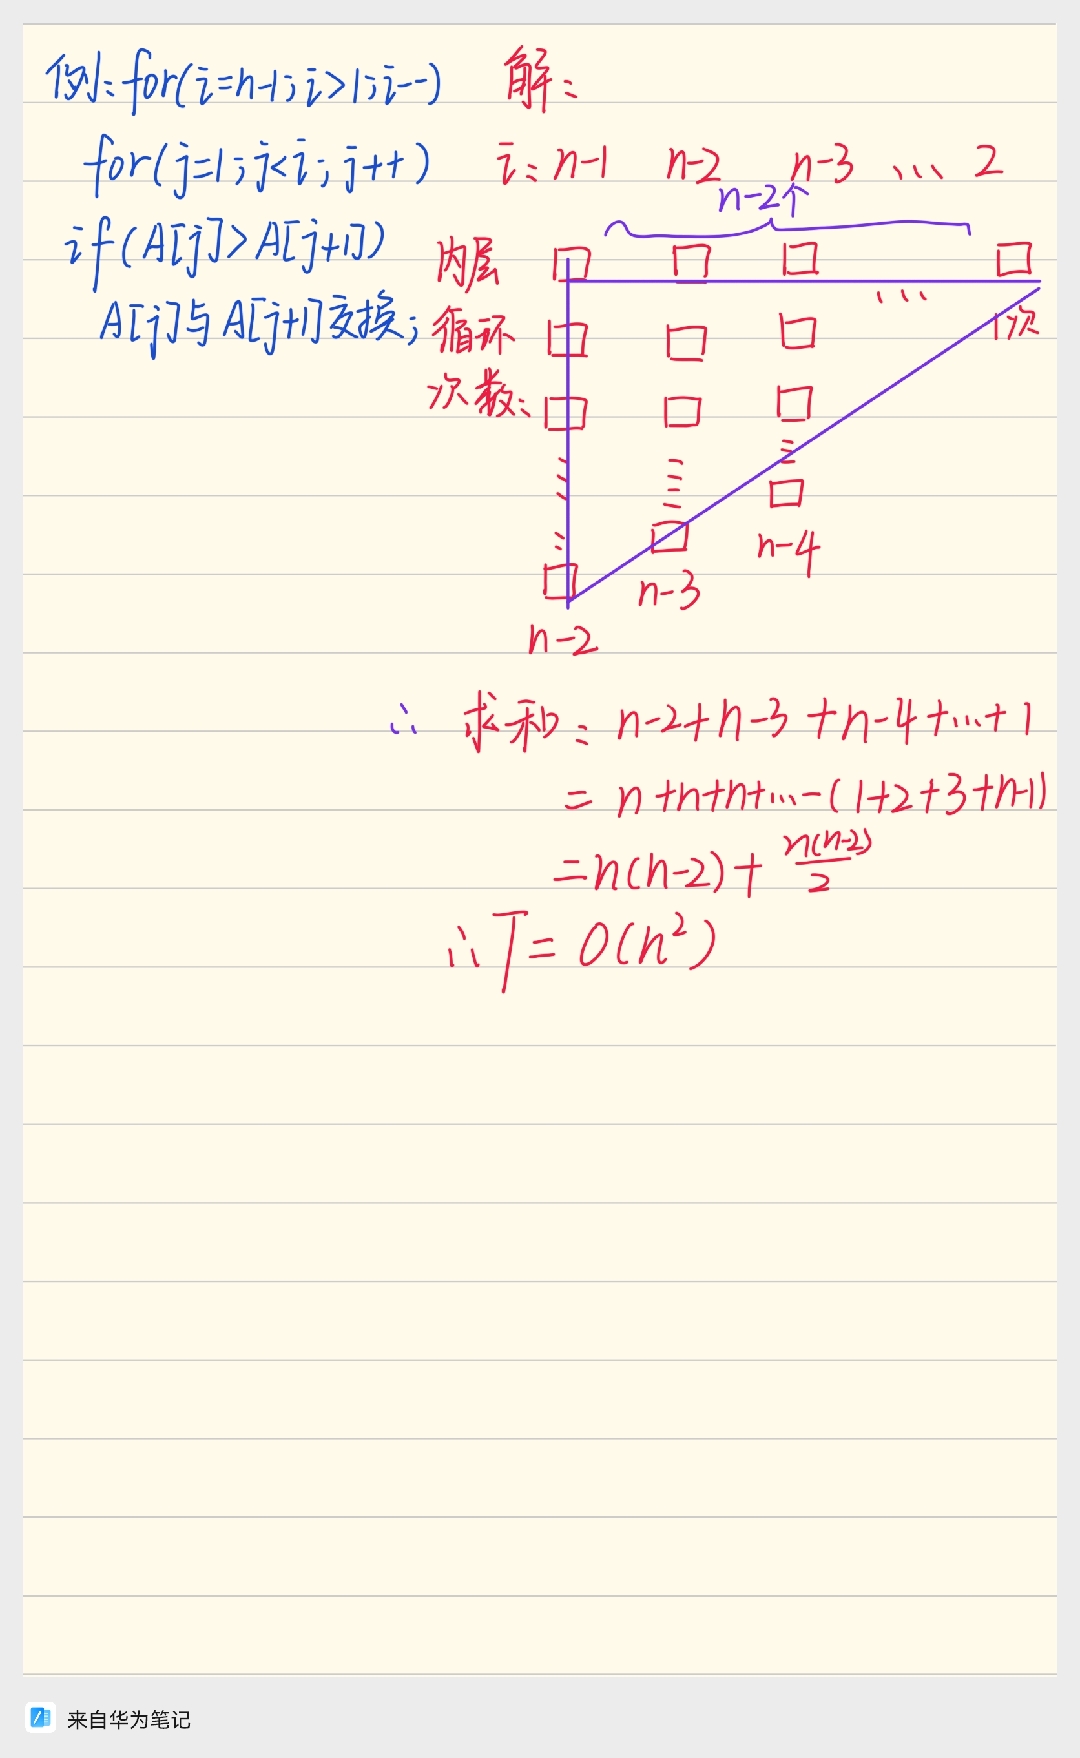 例:for(i=n-1;i>1;i--)
for(j=1;j<i;j++)
if(A[j]>A[j+1])
A[j]与A[j+1]交换;
解:
i: n-1 n-2 n-3 ... 2
n-2个
内层
循环
次数:
...
1次
n-4
n-3
n-2
∴ 求和: n-2+n-3+n-4+...+1
= n+n+n+...-(1+2+3+n-1)
=n(n-2)+ n(n-2)/2
∴T= O(n²)
来自华为笔记